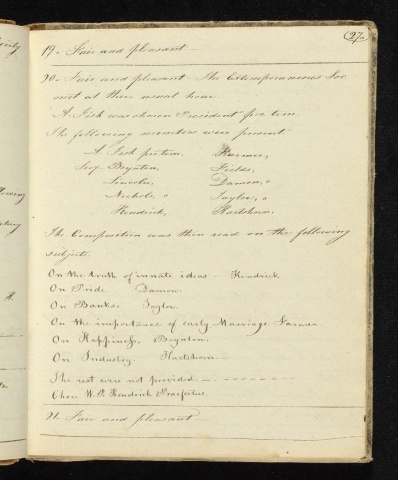 27.
19. Fair and pleasant —
20. Fair and pleasant — The Extemporaneous Soc.
met at their usual hour.
A. Fisk was chosen President pro tem.
The following members were present
A. Fisk pro tem,
Secy Boynton,
Lincoln,
Nichols,
Kendrick,
Fields,
Damon,
Taylor,
Hartshorn.
The Composition was then read on the following
subjects.
On the truth of innate ideas — Kendrick
On Pride Damon.
On Banks Taylor.
On the importance of early Marriage
On Happiness. Boynton.
On Industry. Hartshorn —
The rest were not provided. —
Chose W. P. Kendrick Praefectus.
21. Fair and pleasant —